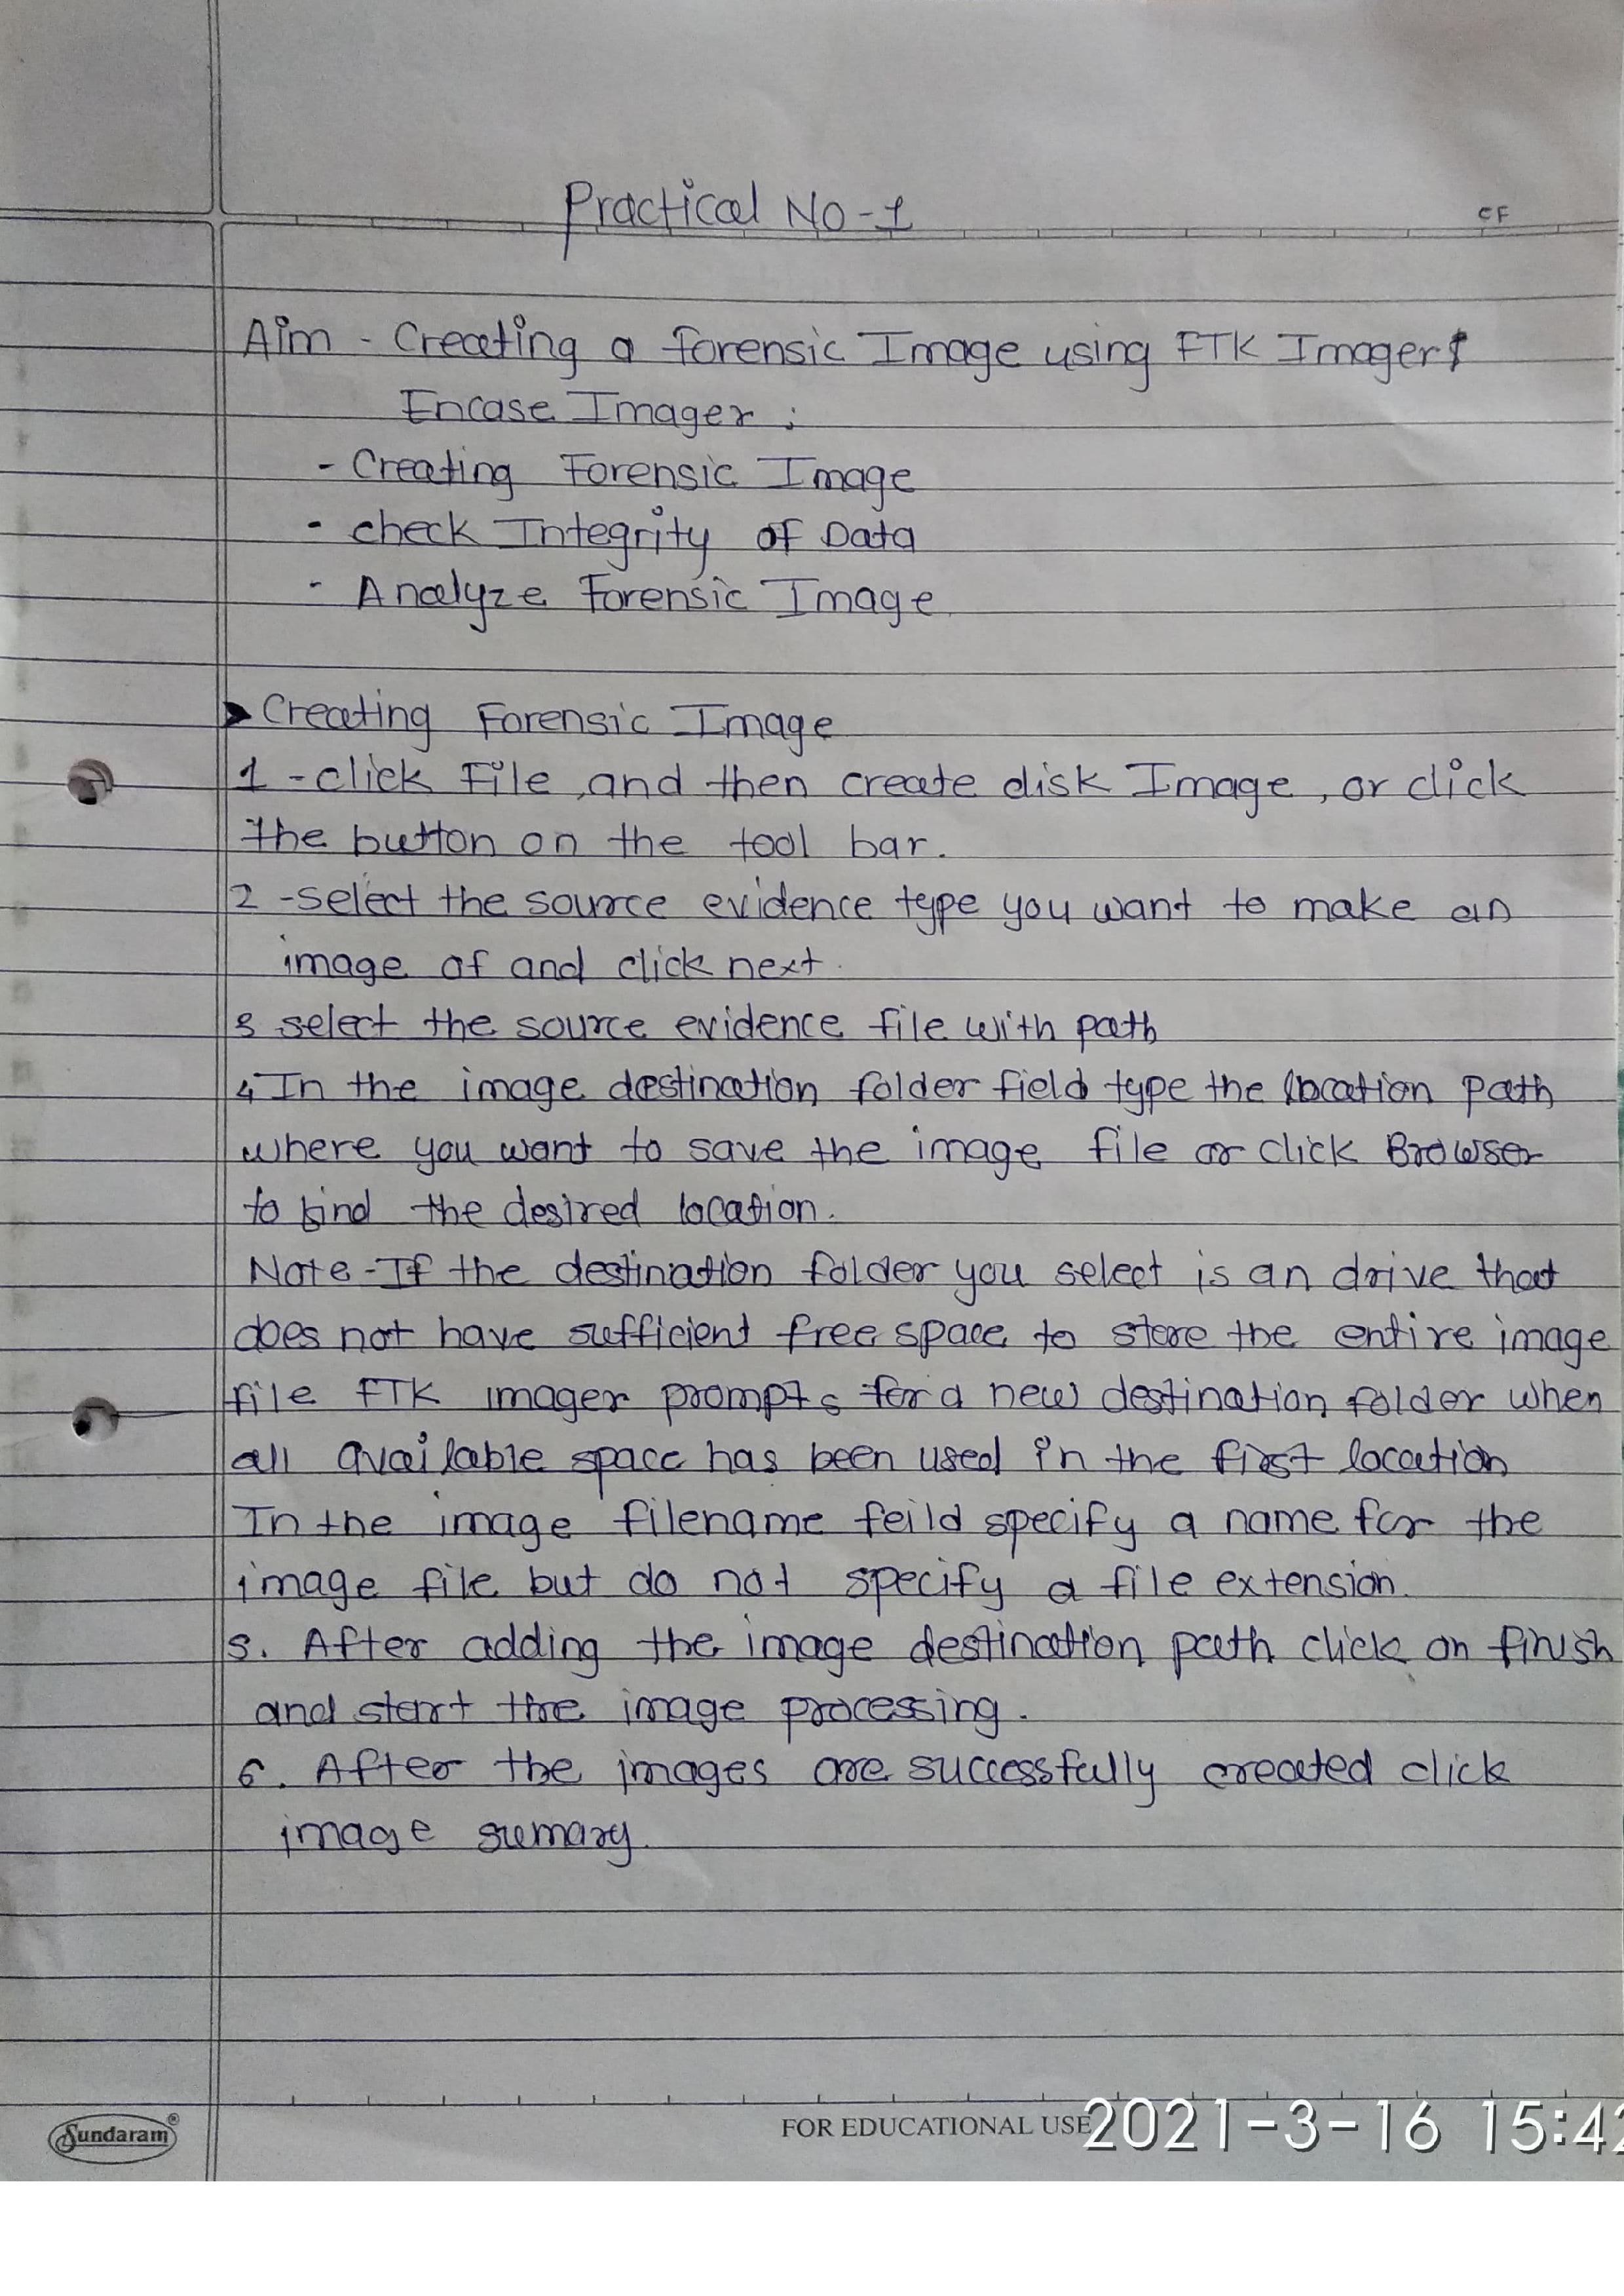 Practical No-1
CF
Aim - Creating a forensic Image using FTK Imager/
Encase Imager :
- Creating Forensic Image
- check Integrity of Data
- Analyze Forensic Image
➤ Creating Forensic Image
1 - click File, and then create disk Image, or click
the button on the tool bar.
2 - select the source evidence type you want to make an
image of and click next.
3 select the source evidence file with path
4 In the image destination folder field type the location path
where you want to save the image file or click Browser
to find the desired location.
Note - If the destination folder you select is an drive that
does not have sufficient free space to store the entire image
file FTK imager prompts for a new destination folder when
all available space has been used in the first location
In the image filename feild specify a name for the
image file but do not specify a file extension.
5. After adding the image destination path click on finish
and start the image processing.
6. After the images are successfully created click
image sumary.
Sundaram®
FOR EDUCATIONAL USE
2021-3-16 15:42